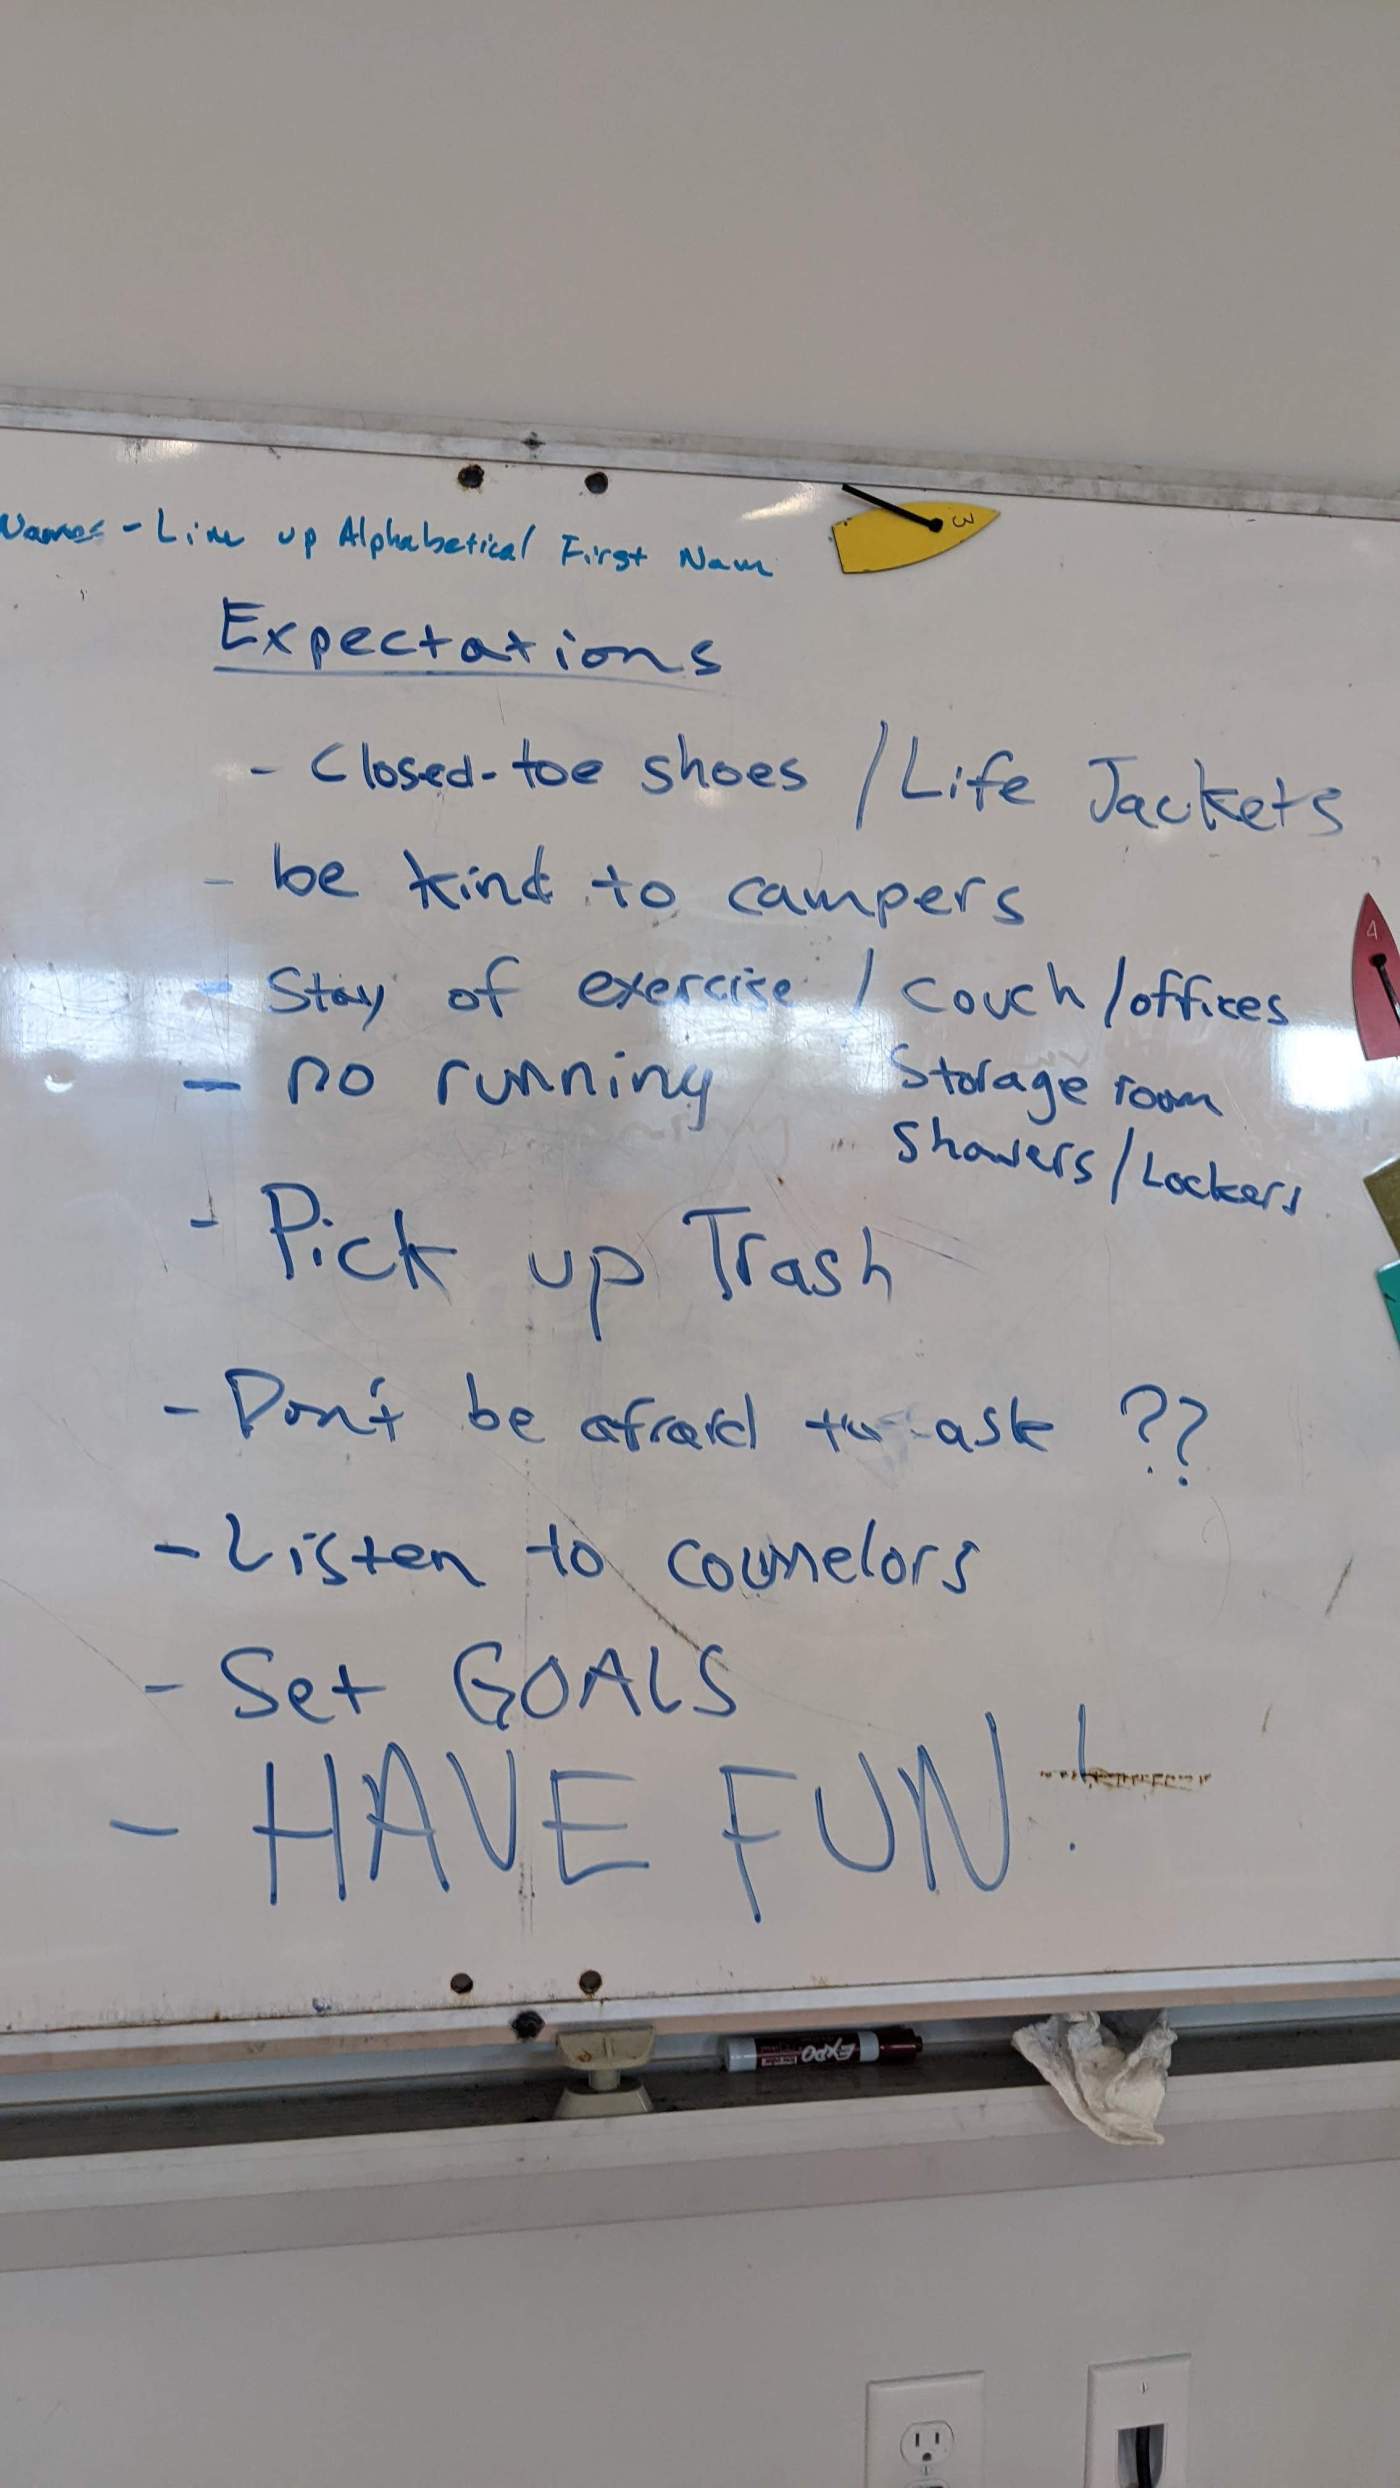 Names - Line up Alphabetical First Nam
3
Expectations
- Closed-toe shoes / Life Jackets
- be kind to campers
4
- Stay of exercise / couch / offices
- no running Storage room
Showers / Lockers
- Pick up Trash
- Don't be afraid to ask ??
- Listen to counselors
- Set GOALS
- HAVE FUN!
EXPO